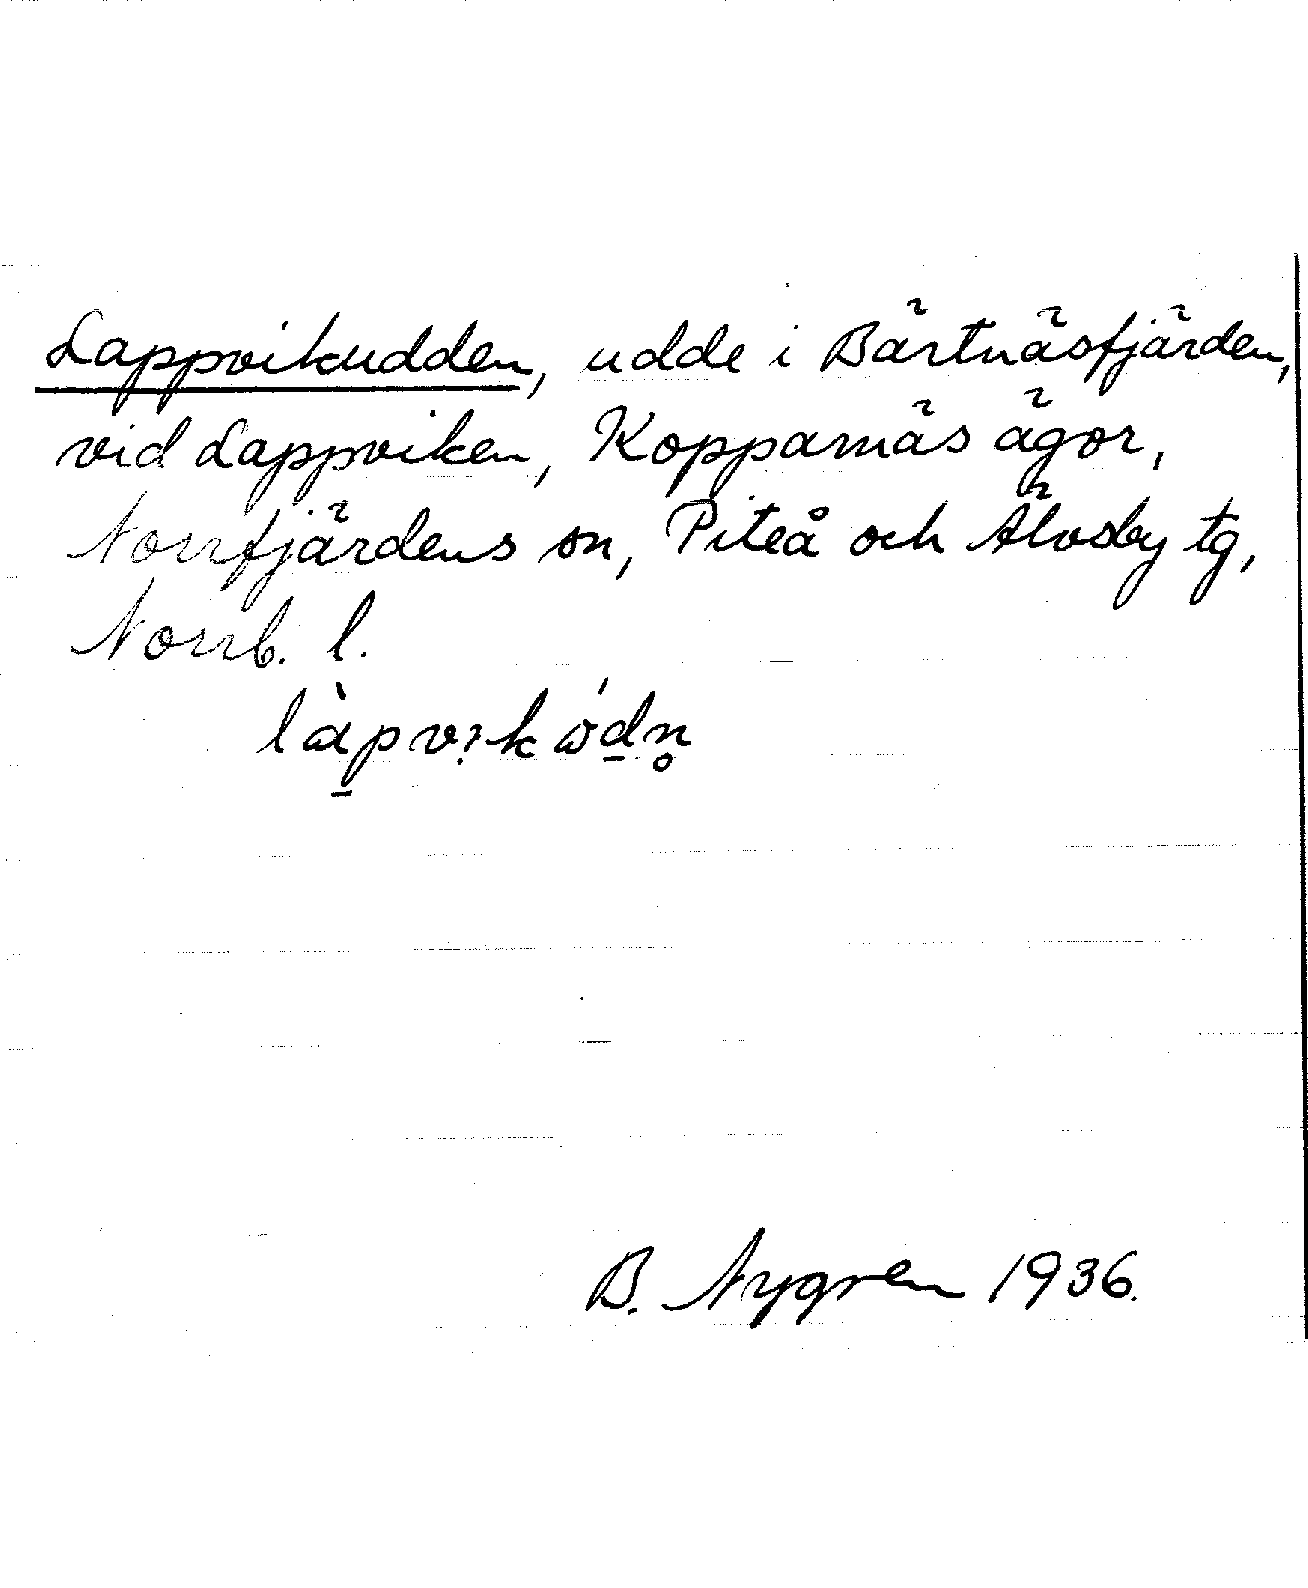 Lappvikudden, udde i Bärtnäsfjärden,
vid Lappviken, Kopparnäs ägor,
Norrfjärdens sn, Piteå och Älvsby tg,
Norrb. l.
B. Nygren 1936.